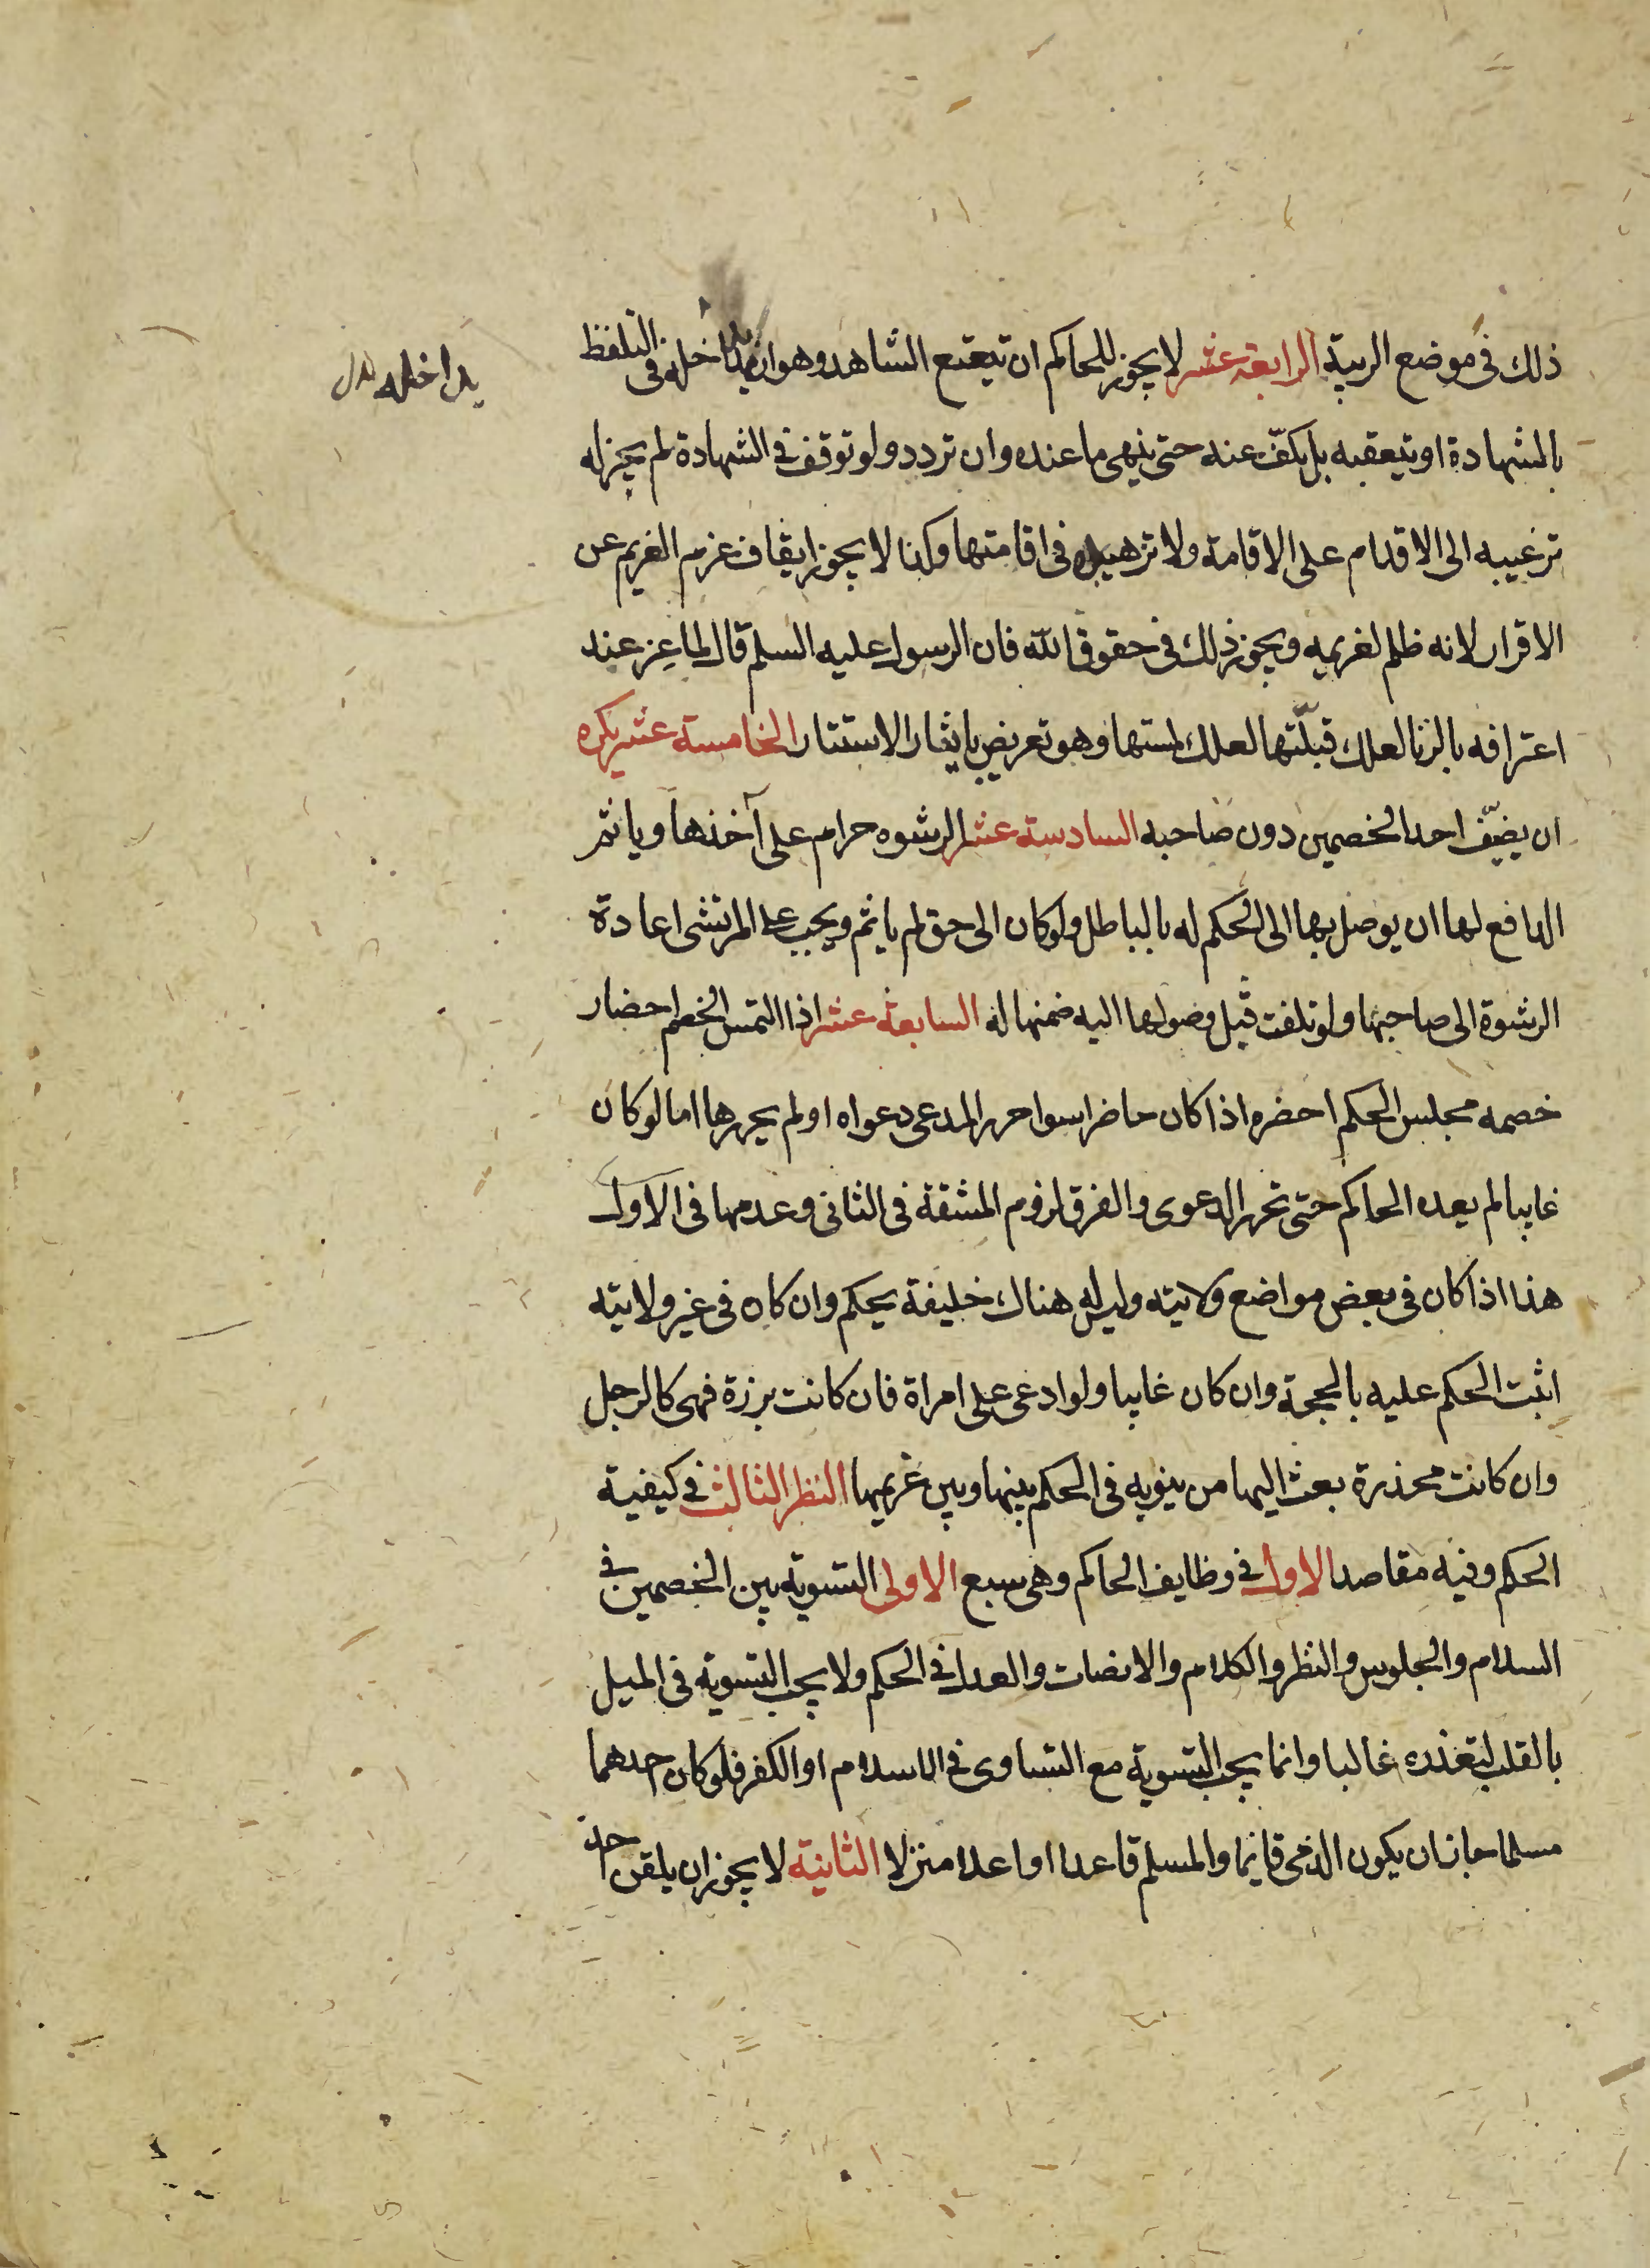 ذلك في موضع الريبة الرابعة عشر لا يجوز للحاكم ان يتعتع الشاهد وهو ان يداخله في التلفظ
يداخله بدل
بالشهادة او يتعقبه بل يكفّ عنه حتى ينهى ما عنده وان تردد ولو توقف في الشهادة لم يجز له
ترغيبه الى الاقدام على الاقامة ولا تزهيده في اقامتها وكذا لا يجوز ايقاف عزم الغريم عن
الاقرار لانه ظلم لغريمه ويجوز ذلك في حقوق الله فان الرسول عليه السلم قال لماعز عند
اعترافه بالزنا لعلك قبلّتها لعلك لمستها وهو تعريض بايثار الاستتار الخامسة عشر يكره
ان يضيّف احد الخصمين دون صاحبه السادسة عشر الرشوه حرام على آخذها وياثم
الدافع لها ان يوصل بها الى الحكم له بالباطل ولو كان الى حق لم ياثم ويجب على المرتشى اعادة
الرشوة الى صاحبها ولو تلفت قبل وصولها اليه ضمنها له السابعة عشر اذا التمس الخصم احضار
خصمه مجلس الحكم احضره اذا كان حاضرا سوا حرر المدعى دعواه او لم يحررها اما لو كان
غايبا لم يعده الحاكم حتى تحرر الدعوى والفرق لزوم المشقة في الثاني وعدمها في الاول
هذا اذا كان في بعض مواضع ولايته وليس له هناك خليفة يحكم وان كان في غير ولايته
اثبت الحكم عليه بالحجة وان كان غايبا ولو ادعى على امراة فان كانت برزة فهى كالرجل
وان كانت مخدرة بعث اليها من ينوبه في الحكم بينها وبين غريمها النظر الثالث في كيفية
الحكم وفيه مقاصد الاول في وظايف الحاكم وهى سبع الاولى التسوية بين الخصمين في
السلام والجلوس والنظر والكلام والانصات والعدل في الحكم ولا يجب التسوية في الميل
بالقلب لتعذره غالبا وانما يجب التسوية مع التساوى في الاسلام او الكفر فلو كان احدهما
مسلما جاز ان يكون الذمى قائما والمسلم قاعدا او اعلا منزلا الثانية لا يجوز ان يلقن احد